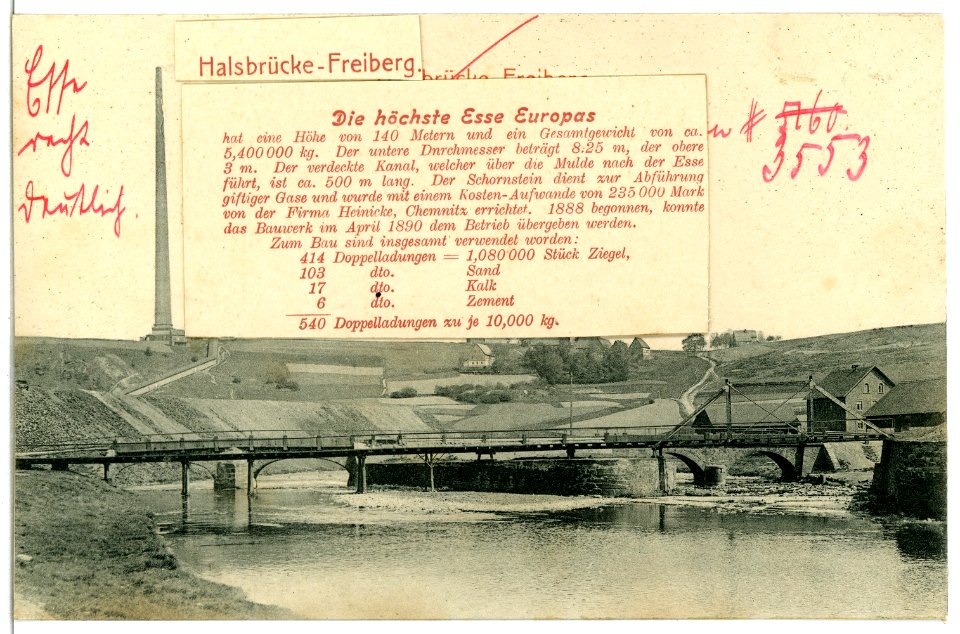 Halsbrücke-Freiberg.
brücke Freiberg
Esse
recht
deutlich.
# 3760.
3553
Die höchste Esse Europas
hat eine Höhe von 140 Metern und ein Gesamtgewicht von ca.
5,400 000 kg. Der untere Dnrchmesser beträgt 8:25 m, der obere
3 m. Der verdeckte Kanal, welcher über die Mulde nach der Esse
führt, ist ca. 500 m lang. Der Schornstein dient zur Abführung
giftiger Gase und wurde mit einem Kosten-Aufwande von 235 000 Mark
von der Firma Heinicke, Chemnitz errichtet. 1888 begonnen, konnte
das Bauwerk im April 1890 dem Betrieb übergeben werden.
Zum Bau sind insgesamt verwendet worden:
414 Doppelladungen = 1,080'000 Stück Ziegel,
103 dto. Sand
17 dto. Kalk
6 dto. Zement
540 Doppelladungen zu je 10,000 kg.